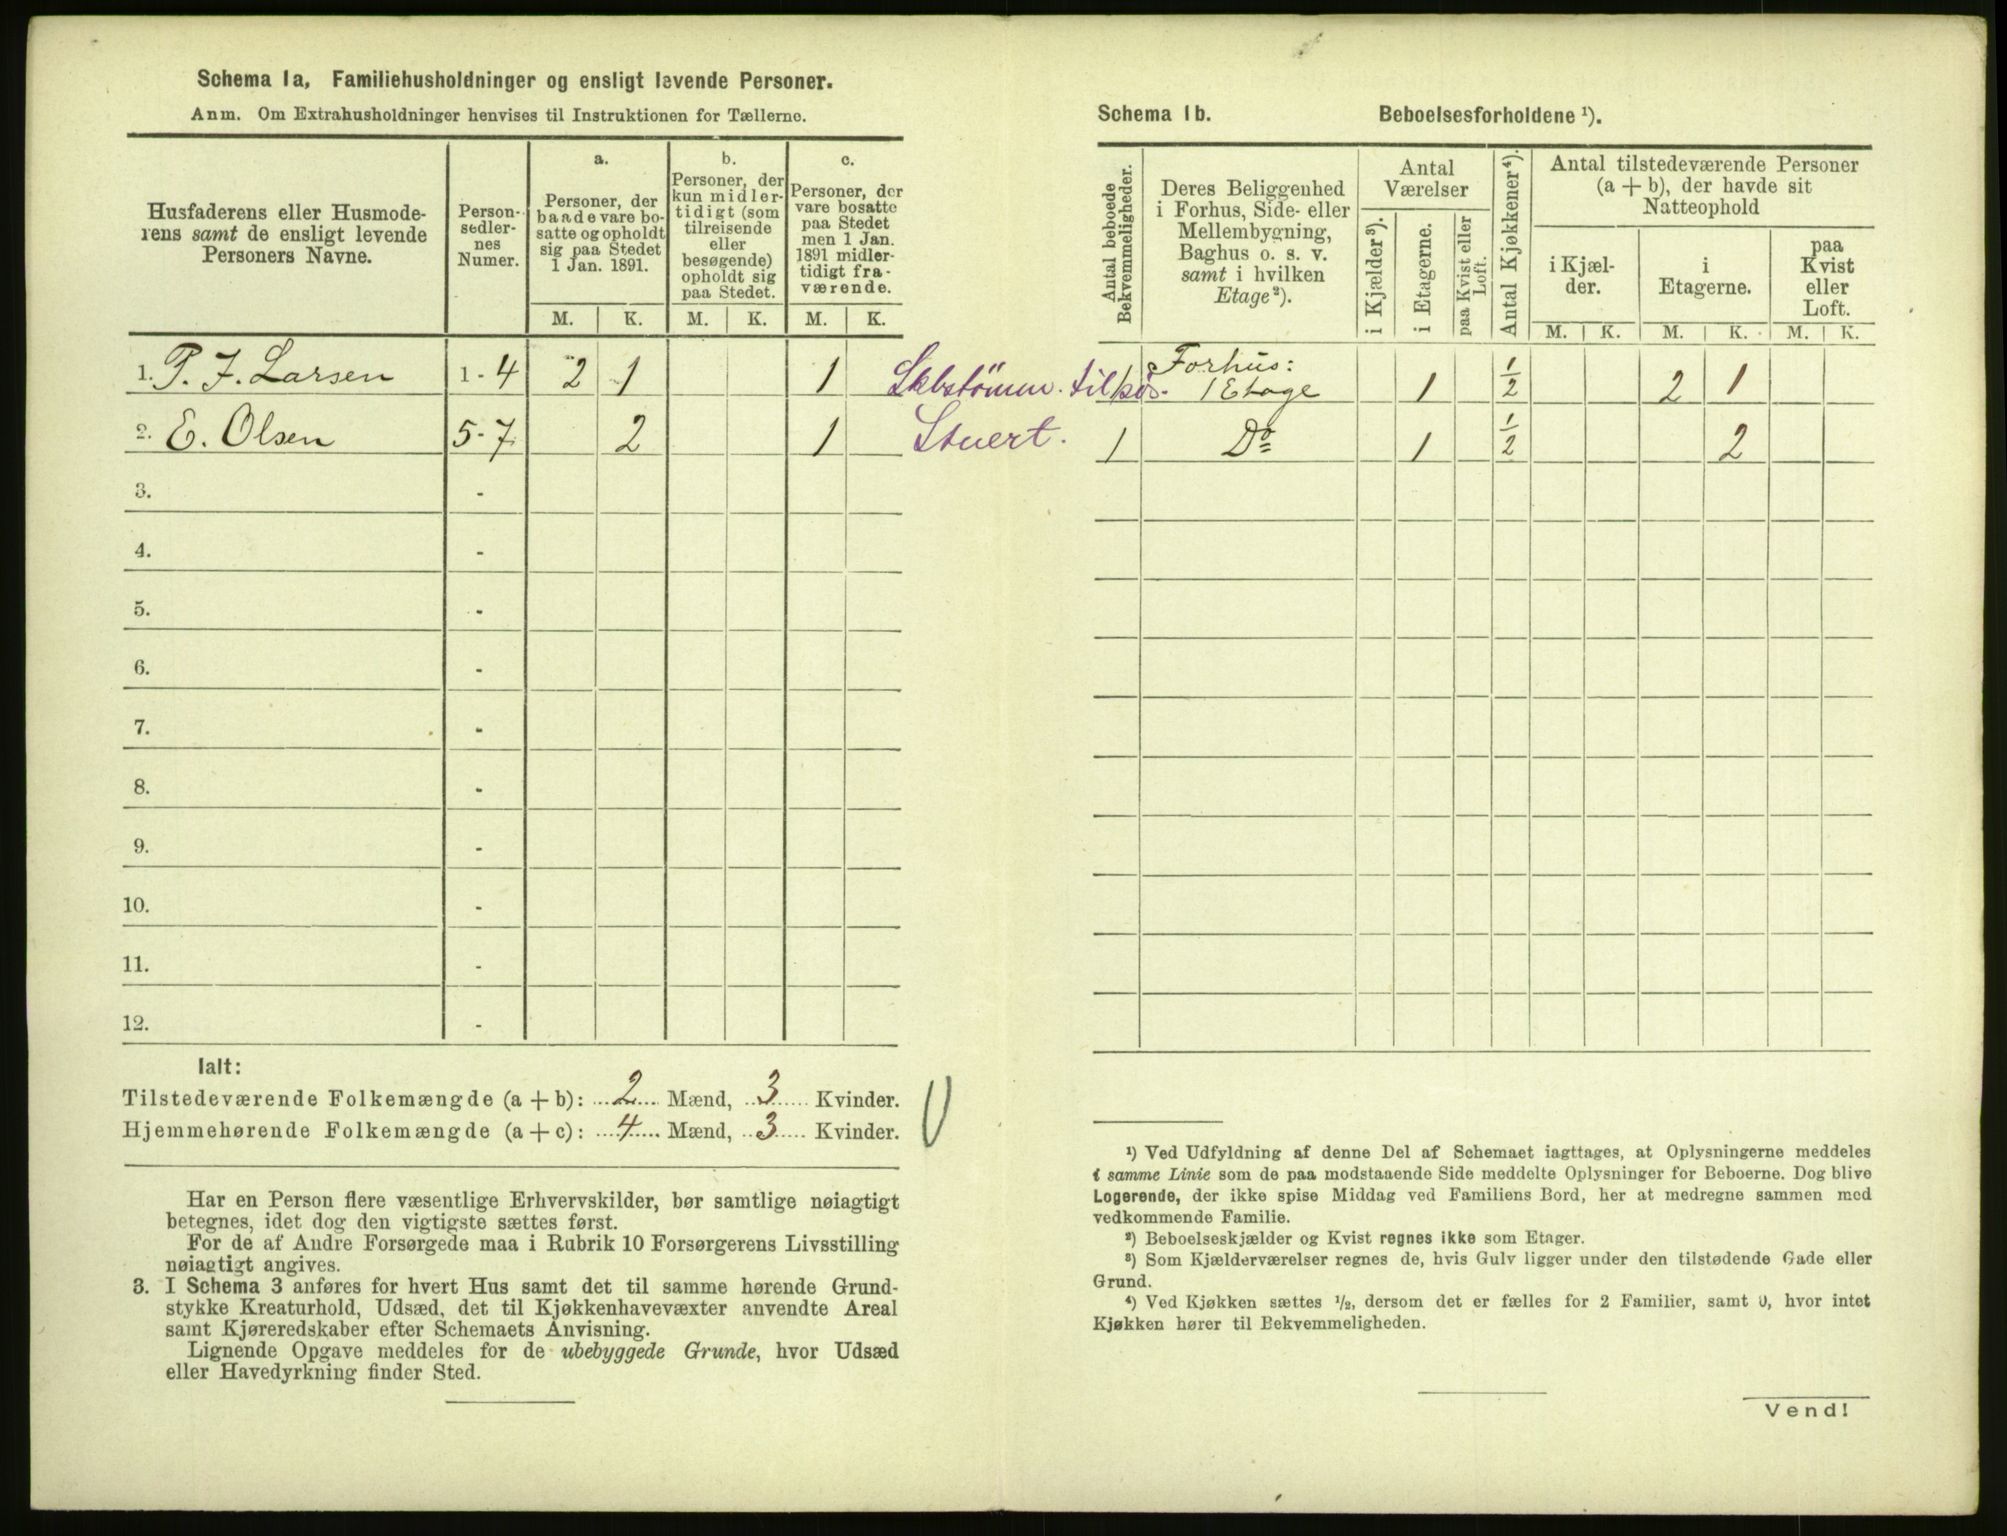 Schema 1a, Familiehusholdninger og ensligt levende Personer.
Anm. Om Extrahusholdninger henvises til Instruktionen for Tællerne.
Husfaderens eller Husmode-
rens samt de ensligt levende
Personers Navne.
Person-
sedler-
nes
Numer.
a.
Personer, der
baade vare bo-
satte og opholdt
sig paa Stedet
1 Jan. 1891.
b.
Personer, der
kun midler-
tidigt (som
tilreisende
eller
besøgende)
opholdt sig
paa Stedet.
c.
Personer, der
vare bosatte
paa Stedet
men 1 Jan.
1891 midler-
tidigt fra-
værende.
M. K. M. K. M. K.
1. P. J. Larsen 1 - 4 2 1 1
2. E. Olsen 5 - 7 2 1 Stuert.
3. -
4. -
5. -
6. -
7. -
8. -
9. -
10. -
11. -
12. -
Ialt:
Tilstedeværende Folkemængde (a + b): 2 Mænd, 3 Kvinder.
Hjemmehørende Folkemængde (a + c): 4 Mænd, 3 Kvinder.
Har en Person flere væsentlige Erhvervskilder, bør samtlige nøiagtigt
betegnes, idet dog den vigtigste sættes først.
For de af Andre Forsørgede maa i Rubrik 10 Forsørgerens Livsstilling
nøiagtigt angives.
3. I Schema 3 anføres for hvert Hus samt det til samme hørende Grund-
stykke Kreaturhold, Udsæd, det til Kjøkkenhavevæxter anvendte Areal
samt Kjøreredskaber efter Schemaets Anvisning.
Lignende Opgave meddeles for de ubebyggede Grunde, hvor Udsæd
eller Havedyrkning finder Sted.
Schema 1b. Beboelsesforholdene ¹).
Antal beboede
Bekvemmeligheder.
Deres Beliggenhed
i Forhus, Side- eller
Mellembygning,
Baghus o. s. v.
samt i hvilken
Etage²).
Antal
Værelser
i Kjælder³).
i Etagerne.
paa Kvist eller
Loft.
Antal Kjøkkener⁴).
Antal tilstedeværende Personer
(a + b), der havde sit
Natteophold
i Kjæl-
der.
i
Etagerne.
paa
Kvist
eller
Loft.
M. K. M. K. M. K.
1 Forhus:
1 Etage 1 1/2 2 1
1 Do 1 1/2 2
¹) Ved Udfyldning af denne Del af Schemaet iagttages, at Oplysningerne meddeles
i samme Linie som de paa modstaaende Side meddelte Oplysninger for Beboerne. Dog blive
Logerende, der ikke spise Middag ved Familiens Bord, her at medregne sammen med
vedkommende Familie.
²) Beboelseskjælder og Kvist regnes ikke som Etager.
³) Som Kjælderværelser regnes de, hvis Gulv ligger under den tilstødende Gade eller
Grund.
⁴) Ved Kjøkken sættes 1/2, dersom det er fælles for 2 Familier, samt 0, hvor intet
Kjøkken hører til Bekvemmeligheden.
Vend!